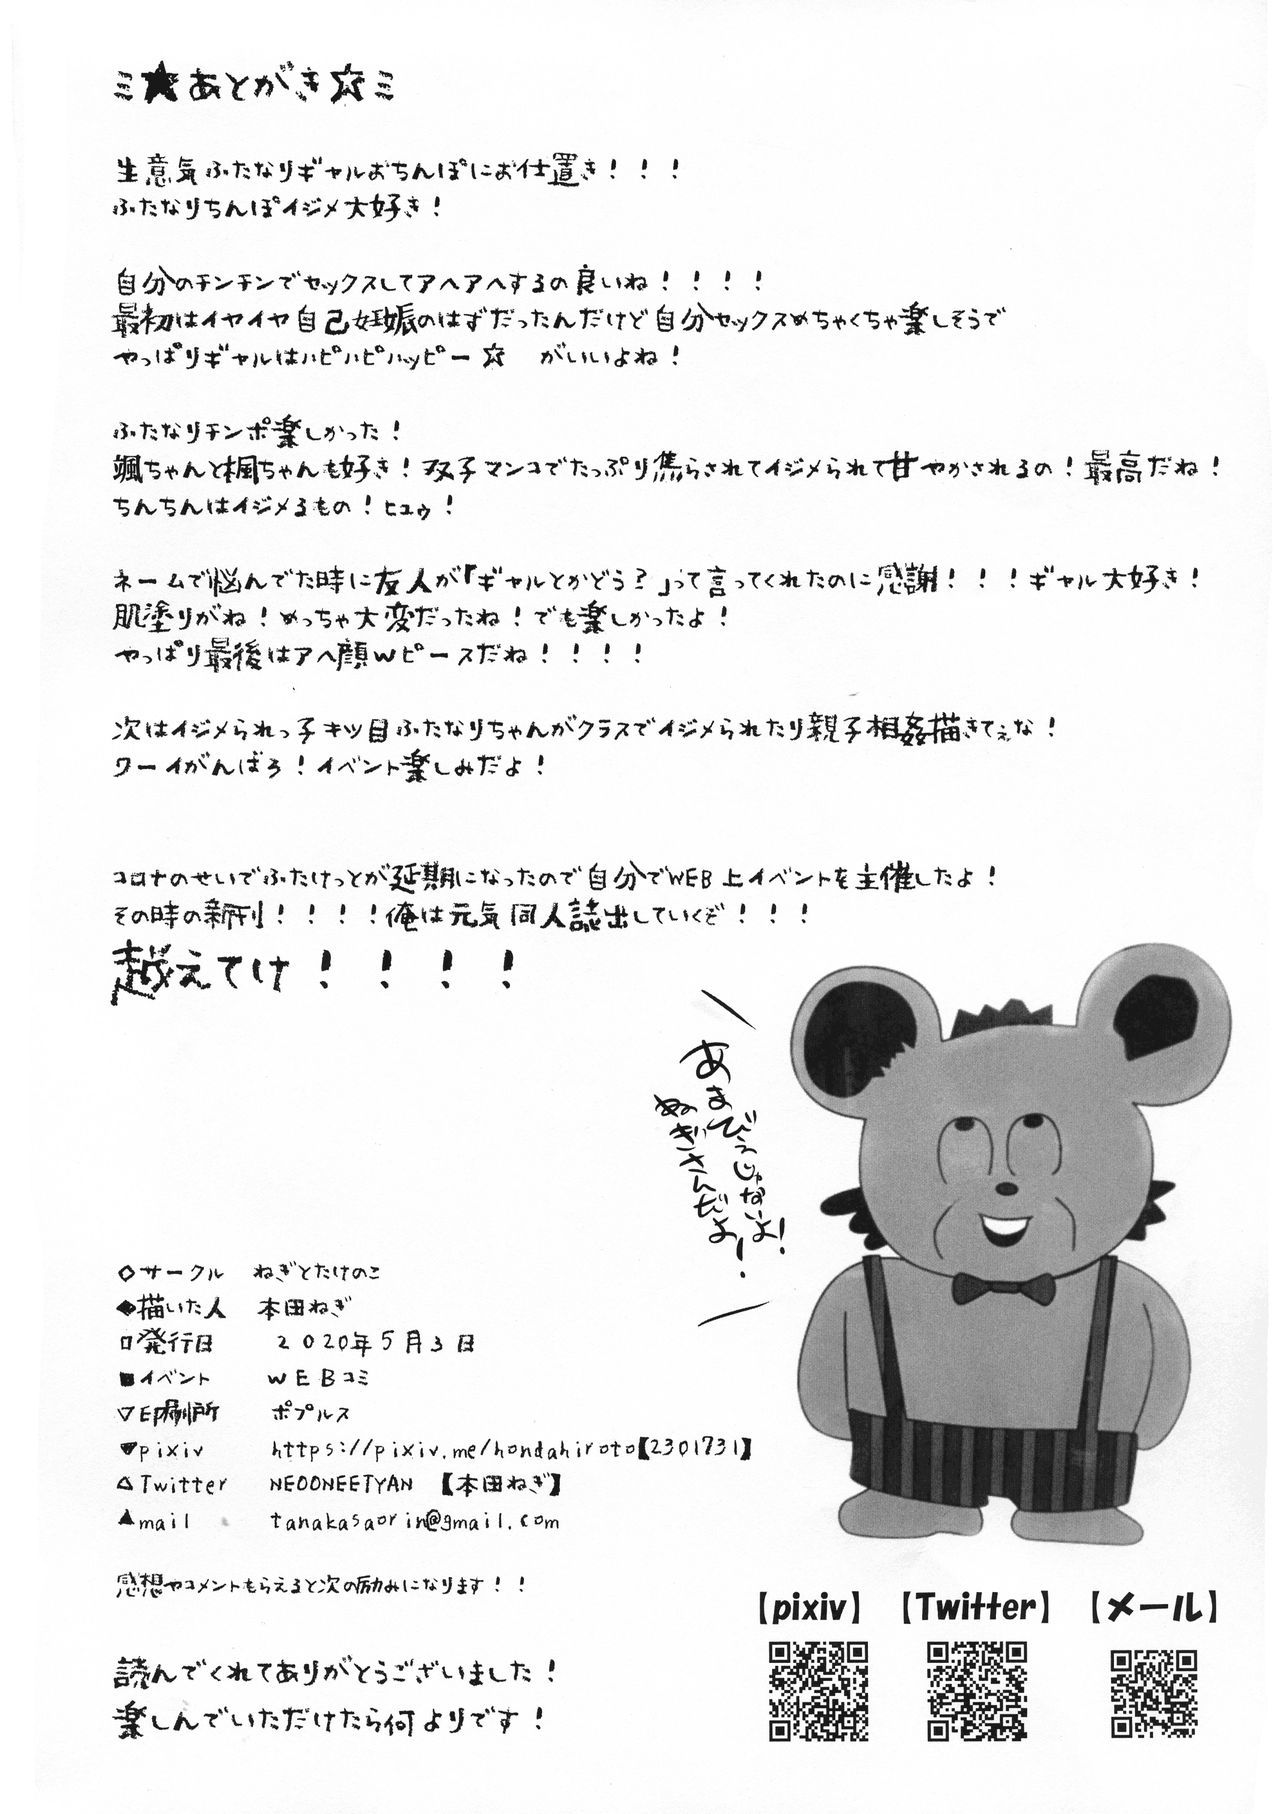 ミ★あとがき☆ミ
生意気ふたなりギャルおちんぽにお仕置き！！！
ふたなりちんぽイジメ大好き！
自分のチンチンでセックスしてアヘアヘするの良いね！！！！
最初はイヤイヤ自己妊娠のはずだったんだけど自分セックスめちゃくちゃ楽しそうで
やっぱりギャルはハピハピハッピー☆　がいいよね！
ふたなりチンポ楽しかった！
颯ちゃんと楓ちゃんも好き！双子マンコでたっぷり焦らされてイジメられて甘やかされるの！最高だね！
ちんちんはイジメるもの！ヒュゥ！
ネームで悩んでた時に友人が「ギャルとかどう？」って言ってくれたのに感謝！！！ギャル大好き！
肌塗りがね！めっちゃ大変だったね！でも楽しかったよ！
やっぱり最後はアヘ顔Wピースだね！！！！
次はイジメられっ子キツ目ふたなりちゃんがクラスでイジメられたり親子相姦描きてぇな！
ワーイがんばろ！イベント楽しみだよ！
コロナのせいでふたけっとが延期になったので自分でWEB上イベントを主催したよ！
その時の新刊！！！！俺は元気同人誌出していくぞ！！！
越えてけ！！！！
あまびえじゃないよ！
ねぎさんだよー！
◇サークル　ねぎとたけのこ
◆描いた人　本田ねぎ
□発行日　２０２０年５月３日
■イベント　WEBコミ
▽印刷所　ポプルス
▼pixiv　https://pixiv.me/hondahiroto【2301731】
△Twitter　NEOONEETYAN　【本田ねぎ】
▲mail　tanakasaorin@gmail.com
感想やコメントもらえると次の励みになります！！
読んでくれてありがとうございました！
楽しんでいただけたら何よりです！
【pixiv】　【Twitter】　【メール】